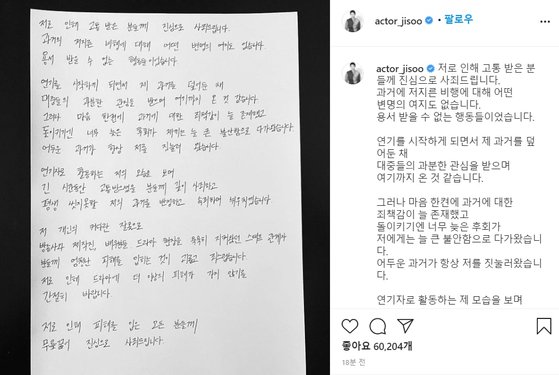 저로 인해 고통 받은 분들께 진심으로 사죄드립니다.
과거에 저지른 비행에 대해 어떤 변명의 여지도 없습니다.
용서 받을 수 없는 행동들이었습니다.
연기를 시작하게 되면서 제 과거를 덮어둔 채
대중들의 과분한 관심을 받으며 여기까지 온 것 같습니다.
그러나 마음 한켠에 과거에 대한 죄책감이 늘 존재했고
돌이키기엔 너무 늦은 후회가 저에게는 늘 큰 불안함으로 다가왔습니다.
어두운 과거가 항상 저를 짓눌러 왔습니다.
연기자로 활동하는 저의 모습을 보며
긴 시간동안 고통받으셨을 분들께 깊이 사죄하고
평생 씻지못할 저의 과거를 반성하고 속죄하며 뉘우치겠습니다.
저 개인의 커다란 잘못으로
방송사와 제작진, 배우분들, 드라마 현장을 묵묵히 지켜왔던 스텝분들 관계자
분들께 엄청난 피해를 입히는 것이 괴롭고 죄스럽습니다
저로 인해 드라마에 더 이상의 피해가 가지 않기를
간절히 바랍니다
저로 인해 피해를 입은 모든 분들께
무릎꿇어 진심으로 사죄드립니다
actor_jisoo • 팔로우
actor_jisoo 저로 인해 고통 받은 분
들께 진심으로 사죄드립니다.
과거에 저지른 비행에 대해 어떤
변명의 여지도 없습니다.
용서 받을 수 없는 행동들이었습니다.
연기를 시작하게 되면서 제 과거를 덮
어둔 채
대중들의 과분한 관심을 받으며
여기까지 온 것 같습니다.
그러나 마음 한켠에 과거에 대한
죄책감이 늘 존재했고
돌이키기엔 너무 늦은 후회가
저에게는 늘 큰 불안함으로 다가왔습니
다.
어두운 과거가 항상 저를 짓눌러왔습니
다.
연기자로 활동하는 제 모습을 보며
좋아요 60,204개
18분 전